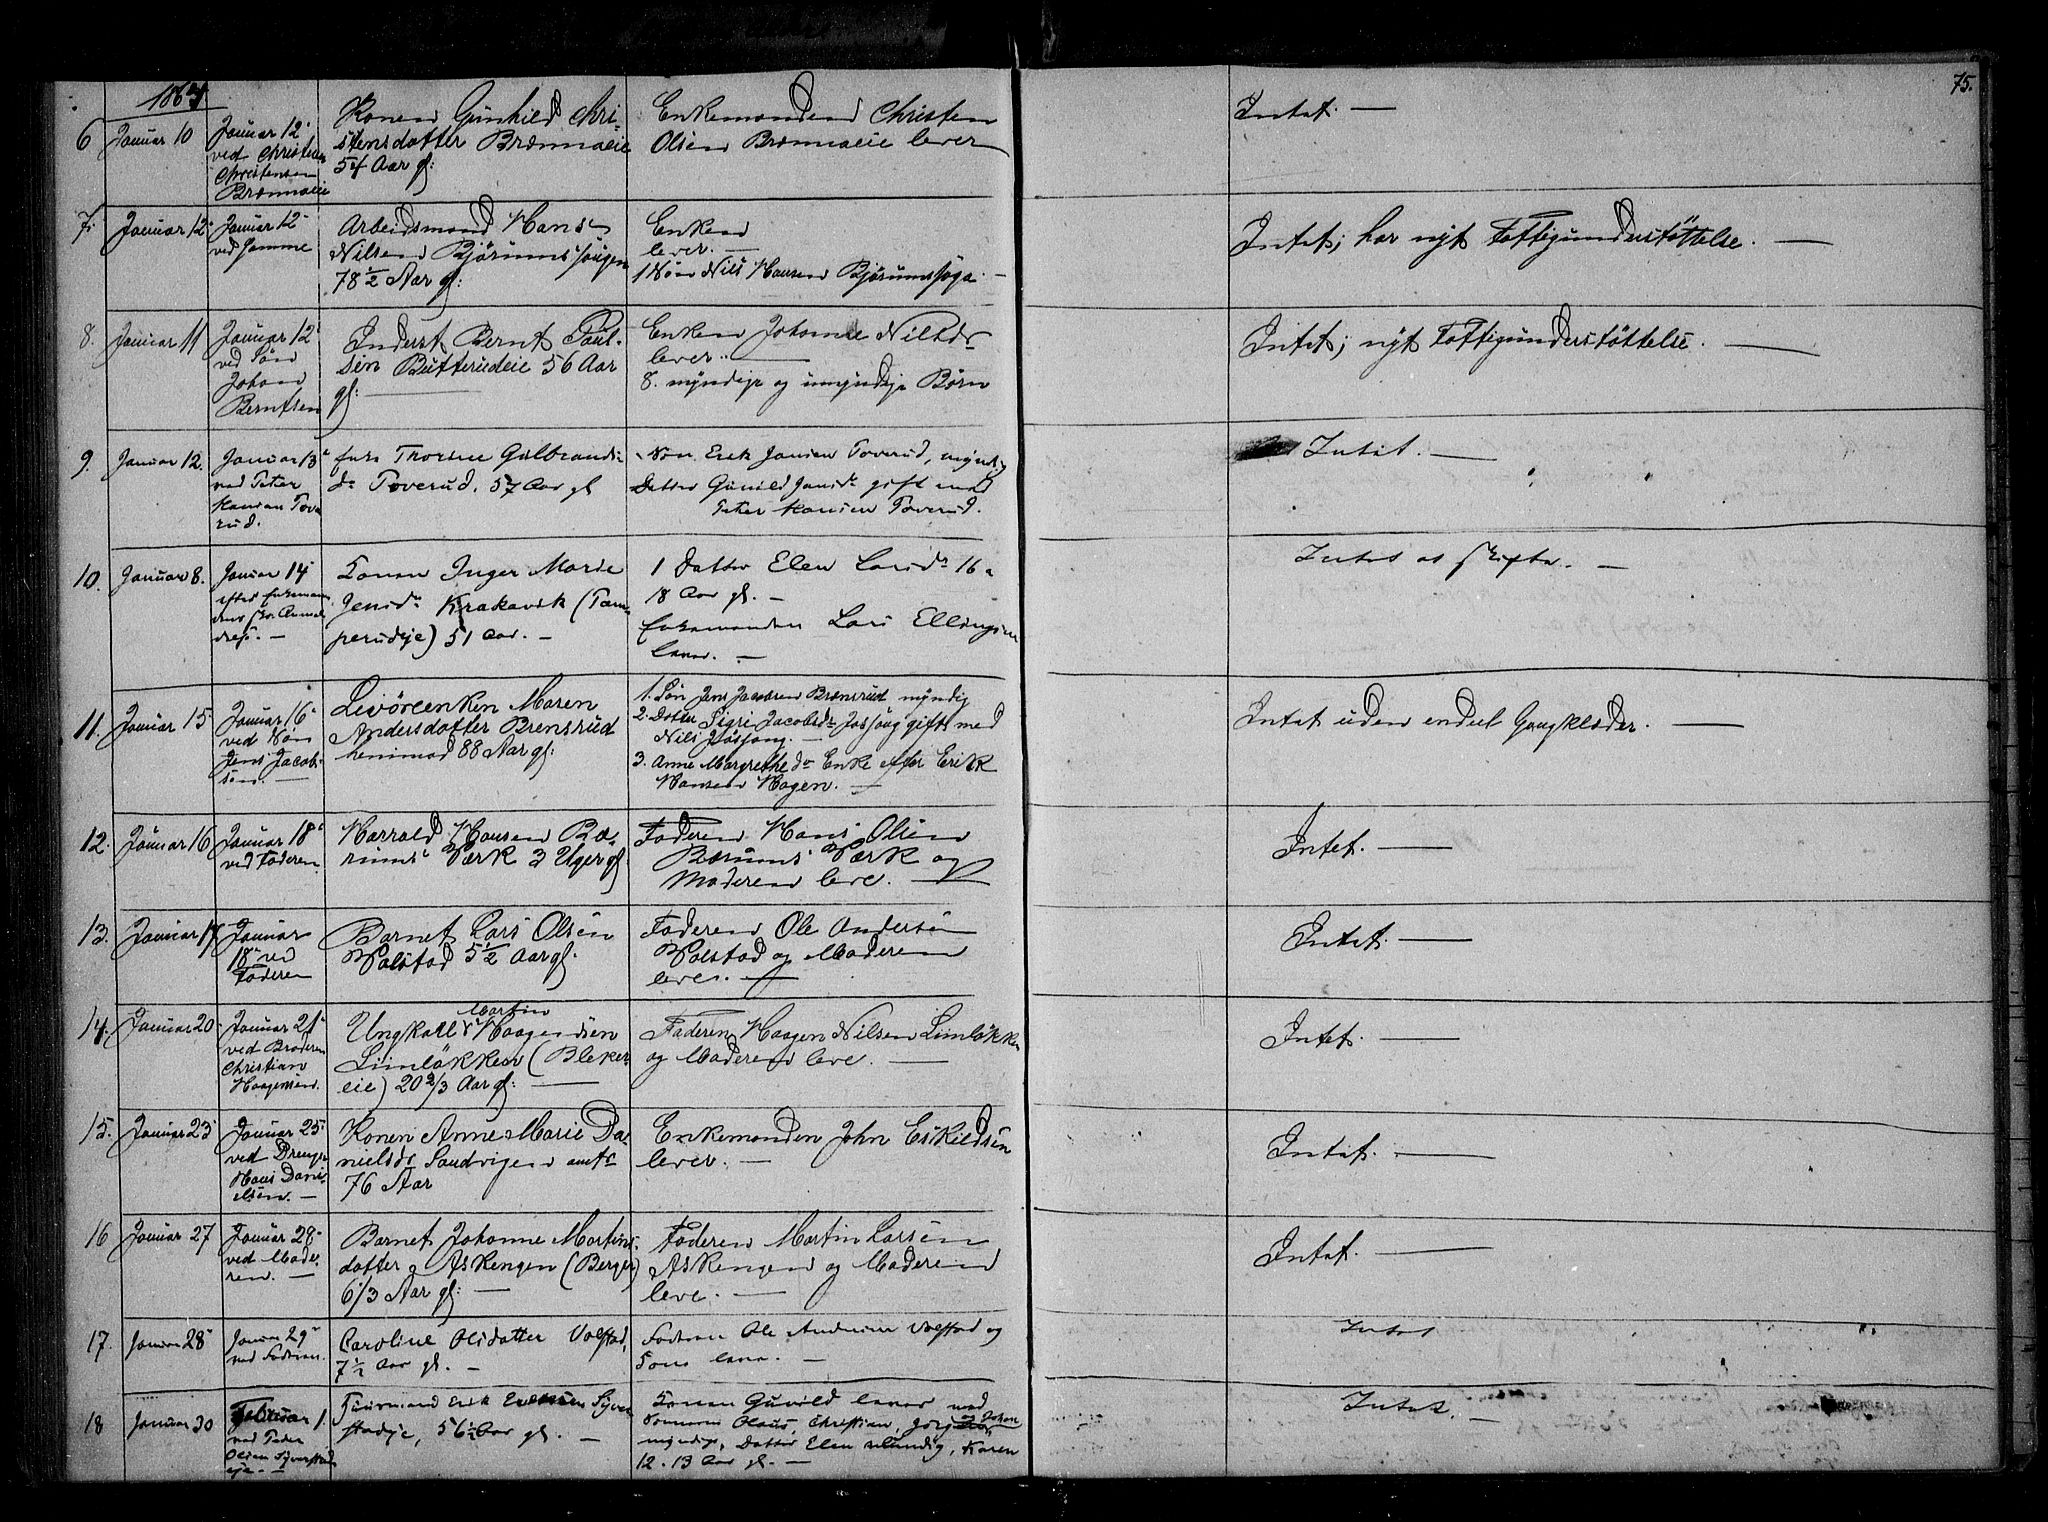 75.
1864
6 Januar 10 Januar 12 ved Christen Christensen Brænnaeie
Konen Gunhild Chri-
stensdatter Brænnaeie
54 Aar gl:
Enkemanden Christen
Olsen Brænnaeie lever
Intet. —
7. Januar 12 Januar 12 ved Samme
Arbeidsmand Hans
Nilsen Bjørums
78 1/2 Aar gl:
Enken
lever. —
1 Søn Nils Hansen
Intet; har nydt Fattigunderstøttelse. —
8. Januar 11 Januar 12 ved Søn Johan Berntsen
Inderst Bernt Paul-
sen Butterudeie 56 Aar
gl: —
Enken Johanne Nilsdr
lever. —
8. myndige og umyndige Børn
Intet; nydt Fattigunderstøttelse. —
9. Januar 12. Januar 13 ved Peter Hansen Tove rud.
Enke Thorine Gulbrands-
dr Toverud. 57 Aar gl
Søn Erek Jensen Toverud, myndig
Datter Gunild Jensdr gift med
Peter Hansen Toverud.
Intet. —
10. Januar 8. Januar 14
Konen Inger Marie
Jensdr Krakavik (Tam-
perudeje) 51 Aar. —
1 Datter Elen Larsdr 16 a
18 Aar gl. —
Enkemanden Lars Ellingsen
lever. —
Intet at skifte. —
11. Januar 15 Januar 16 ved Søn Jens Jacob- sen. —
Levøreenken Maren
Andersdatter Brensrud
henimod 88 Aar gl:
1. Søn Jens Jacobsen Brænsrud myndig
2. Datter Sigri Jacobsdr Jøssong gift med
Nils Jøssong. —
3. Anne Margrethe dr Enke efter Erik
Hansen Hagen. —
Intet uden endeel Gangklæder. —
12. Januar 16 Januar 18 ved Faderen.
Harrald Hansen Bæ-
rums Værk 3 Uger gl
Faderen Hans Olsen
Bærums Værk og
Moderen leve. —
Intet. —
13. Januar 17 Januar 18 ved Faderen
Barnet Lars Olsen
Wolstad 5 1/2 Aar gl.
Faderen Ole Andersen
Wolstad og Moderen
leve. —
Intet. —
14. Januar 20 Januar 21 ved Broderen Christian Haagensen.
Martin
Ungkarl Haagensen
Limløkken (Bleker-
eie) 20 2/3 Aar gl: —
Faderen Haagen Nilsen Limløkken
og Moderen leve. —
Intet. —
15. Januar 23 Januar 25 ved Drengen Hans Dani- elsen. —
Konen Anne Marie Da-
nielsdr Sandvigen
76 Aar
Enkemanden John Eskildsen
lever. —
Intet. —
16 Januar 27 Januar 28 ved Mode- ren. —
Barnet Johanne Martins-
datter Askengen (Berger)
6 1/3 Aar gl: —
Faderen Martin Larsen
Askengen og Moderen
leve. —
Intet. —
17. Januar 28 Januar 29 ved Fadren.
Caroline Olsdatter Volstad,
7 1/2 Aar gl. —
Fadren Ole Andersen Volstad og
Kone lever. —
Intet
18 Januar 30 Februar 1. ved Peder Olsen
Erik
56 1/2 Aar gl. —
Konen Guvild lever med
Sønnerne Olaus, Christian, Jørg og Johan
myndige, Datter Elen myndig, Karen
12-13 Aar gl. —
Intet. —